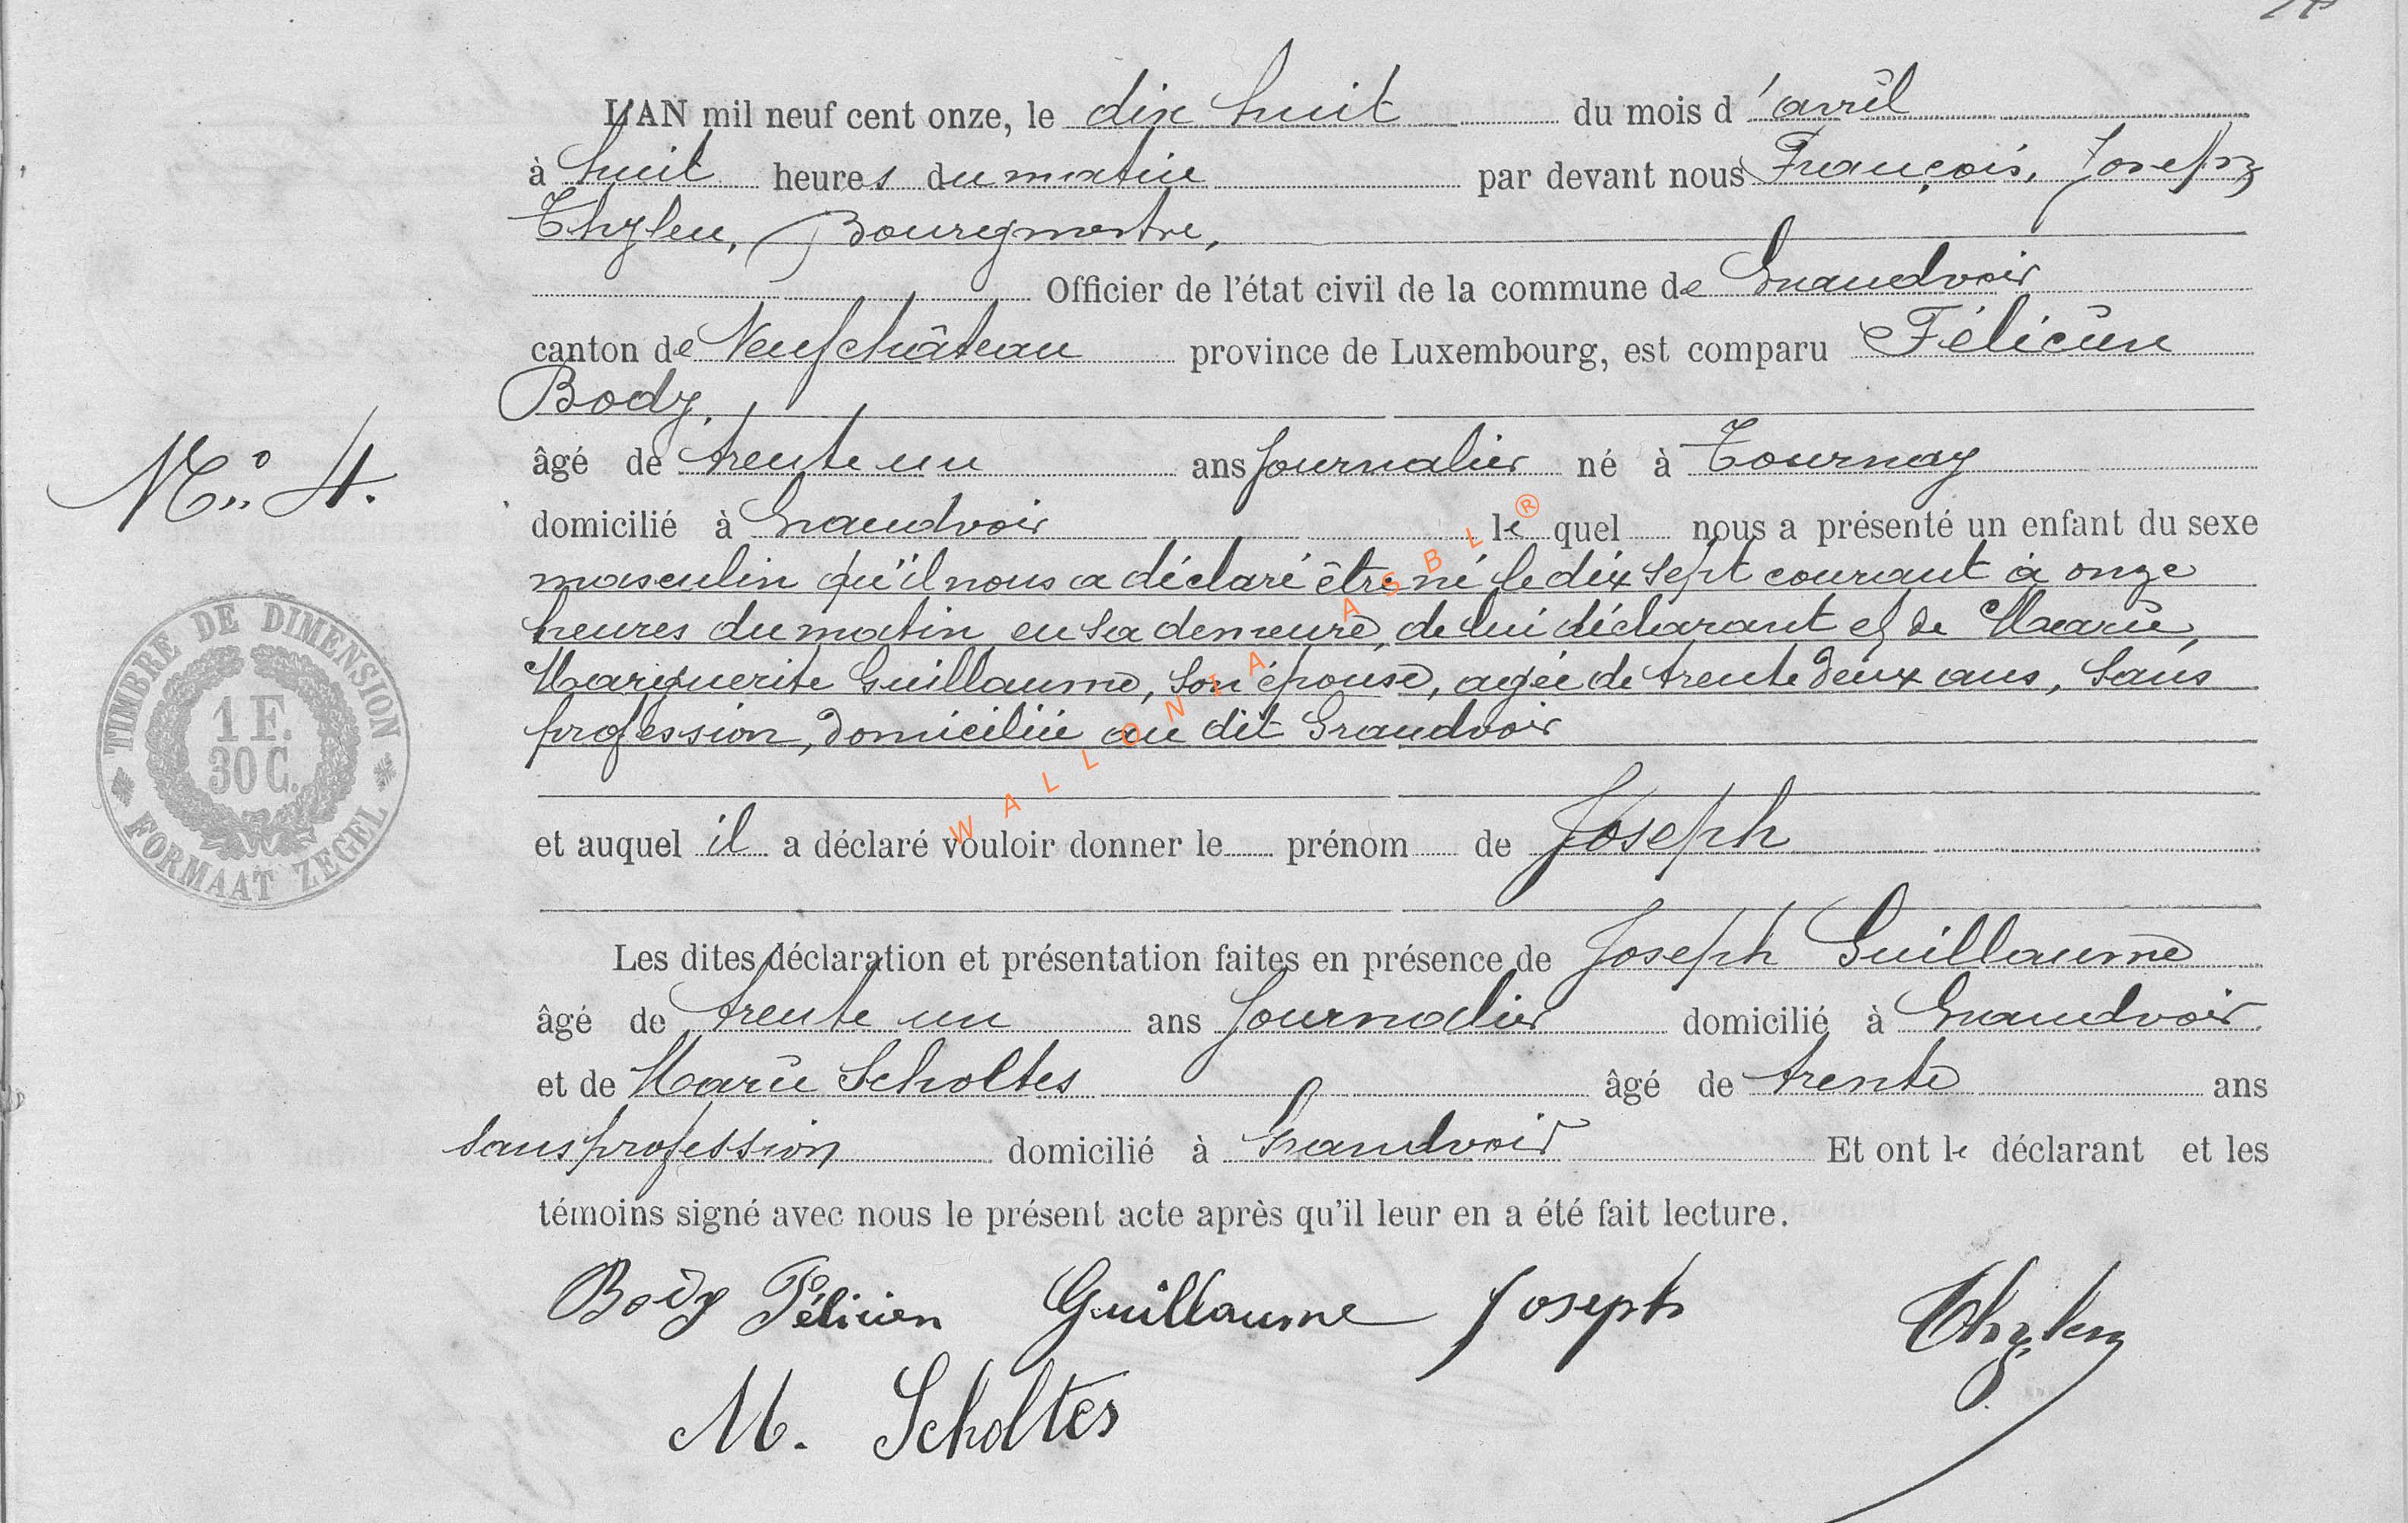 L'AN mil neuf cent onze, le dix huit du mois d'avril
à huit heures du matin par devant nous François, Joseph
Thylen, Bourgmestre,
Officier de l'état civil de la commune de Grandvoir
canton de Neufchâteau province de Luxembourg, est comparu Félicien
Body,
N° 4.
âgé de trente un ans journalier né à Tournay
domicilié à Grandvoir lequel nous a présenté un enfant du sexe
masculin qu'il nous a déclaré être né le dix sept courant à onze
heures du matin en sa demeure, de lui déclarant et de Marie,
Marguerite Guillaume, son épouse, agée de trente deux ans, sans
profession, domiciliée au dit Grandvoir
TIMBRE DE DIMENSION
1 F.
30 C.
FORMAAT ZEGEL
WALLONIA ASBL ®
et auquel il a déclaré vouloir donner le prénom de Joseph
Les dites déclaration et présentation faites en présence de Joseph Guillaume
âgé de trente un ans journalier domicilié à Grandvoir
et de Marie Scholtes âgé de trente ans
sans profession domicilié à Grandvoir Et ont le déclarant et les
témoins signé avec nous le présent acte après qu'il leur en a été fait lecture.
Body Félicien Guillaume Joseph Thylen
M. Scholtes